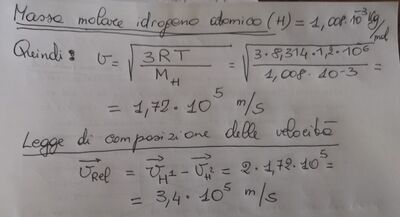 Massa molare idrogeno atomico (H) = 1,008·10⁻³ Kg/mol
Quindi: v = √(3RT / M_H) = √(3·8,314·1,2·10⁶ / 1,008·10-3) =
= 1,72·10⁵ m/s
Legge di composizione delle velocità
v⃗_Rel = v⃗_H¹ - v⃗_H² = 2·1,72·10⁵ =
= 3,4·10⁵ m/s